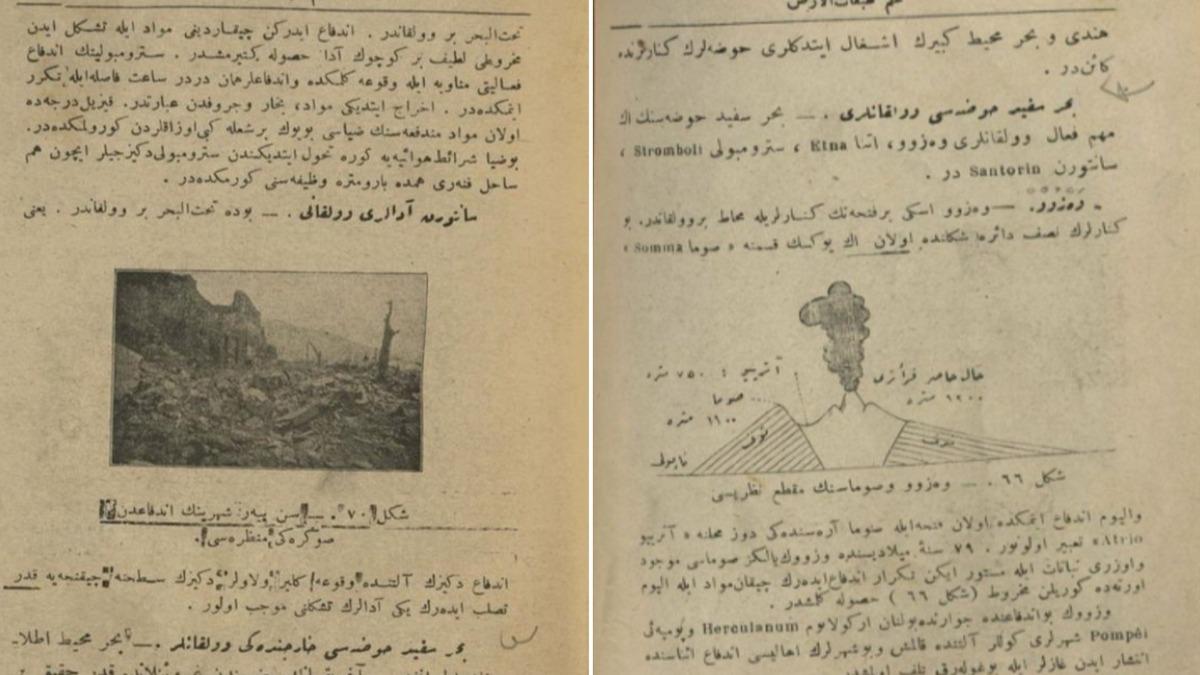 علم طبقات الارض
هندی و بحر محیط کبیرك اشغال ایتدکلری حوضه‌لرك کنارلرنده
کائن‌در .
بحر سفید حوضه‌سی وولقانلری . — بحر سفید حوضه‌سنك اك
مهم فعال وولقانلری وه‌زوو، اتنا Etna ، سترومبولی Stromboli ،
سانتورن Santorin در .
وه‌زوو. — وه‌زوو اسکی برفتحه‌نك کنارلریله محاط بروولقاندر. بو
کنارلرك نصف دائره شکلنده اولان اك یوکسك قسمنه « صوما Somma »
آتریو : ۷۵۰ متره
صوما
۱۱۰۰ متره
حال حاضر قرأتری
۱۲۰۰ متره
توف
توف
ناپولی
شکل ۶۶ . — وه‌زوو وصوماسنك مقطع نظریسی
والیوم اندفاع ایتمکده اولان فتحه‌ایله صوما آره‌سنده‌کی دوز محلنه « آتریو
Atrio» تعبیر اولونور . ۷۹ سنۀ میلادیسنده وزووك یالکز صوماسی موجود
واوزری نباتات ایله مستور ایکن تکرار اندفاع ایدەرك چیقان مواد ایله الیوم
اورته‌ده کوریلن مخروط (شکل ۶۶ ) حصوله کلمشدر .
وزووك بواندفاعنده جوارنده‌بولنان ارکولانوم Herculanum وپومپه‌ئی
Pompéi شهرلری کوللر آلتنده قالمش وبوشهرلرك اهالیسی اندفاع اثناسنده
انتشار ایدن غازلر ایله بوغوله‌رق تلف اولمشدر
تحت‌البحر بر وولقاندر . اندفاع ایدرکن چیقاردیغی مواد ایله تشکل ایدن
مخروطی لطیف بر کوچوك آدا حصوله کتیرمشدر . سترومبولینك اندفاع
فعالیتی مناوبه ایله وقوعه کلمکده واندفاعلرهمان دردر ساعت فاصله‌ایله تکرر
ایتمکده‌در . اخراج ایتدیکی مواد، بخار وجروفدن عبارتدر. قیزیل درجه‌ده
اولان مواد مندفعه‌سنك ضیاسی بویوك برشعله کبی اوزاقلردن کورولمکده‌در.
بوضیا شرائط هوائیه‌یه کوره تحول ایتدیکندن سترومبولی دکیزجیلر ایچون هم
ساحل فنه‌ری همده بارومتره وظیفه‌سنی کورمکده‌در .
سانتورن آدالری وولقانی . — بوده تحت‌البحر بر وولقاندر . یعنی
شکل ۷۰ . — سن پیه‌ر شهرینك اندفاعدن
صوکره‌کی منظره‌سی .
اندفاع دکیزك آلتنده وقوعه کلیر ولاولر دکیزك سطحنه چیقنجه‌یه قدر
تصلب ایده‌رك یکی آدالرك تشکلنی موجب اولور .
بحر سفید حوضه‌سی خارجنده‌کی وولقانلر . — بحر محیط اطلا-